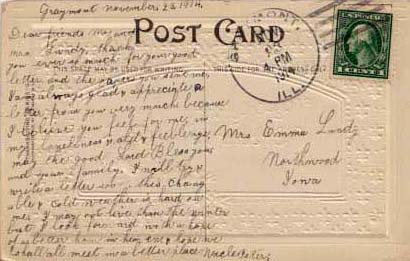 Graymont November 23 1914,
POST CARD
Dear friends Mr and
Mrs. Lindy, thank
you ever so much for your good
letter and the papers you sent me,
I am always glad & appreciate a
letter from you very much because
I believe you feel for me, in
my loneliness and feelings,
may the good Lord Bless you
and your family. I will try &
write a letter soon, this chang
able & cold weather is hard on
me. I may not live then the winter
but I look forward with a hope
of a better home in heaven & hope we
shall all meet in a better place
GRAYMONT
23
4 PM
ILL.
1 CENT 1
Mrs Emma
Northwood
Iowa